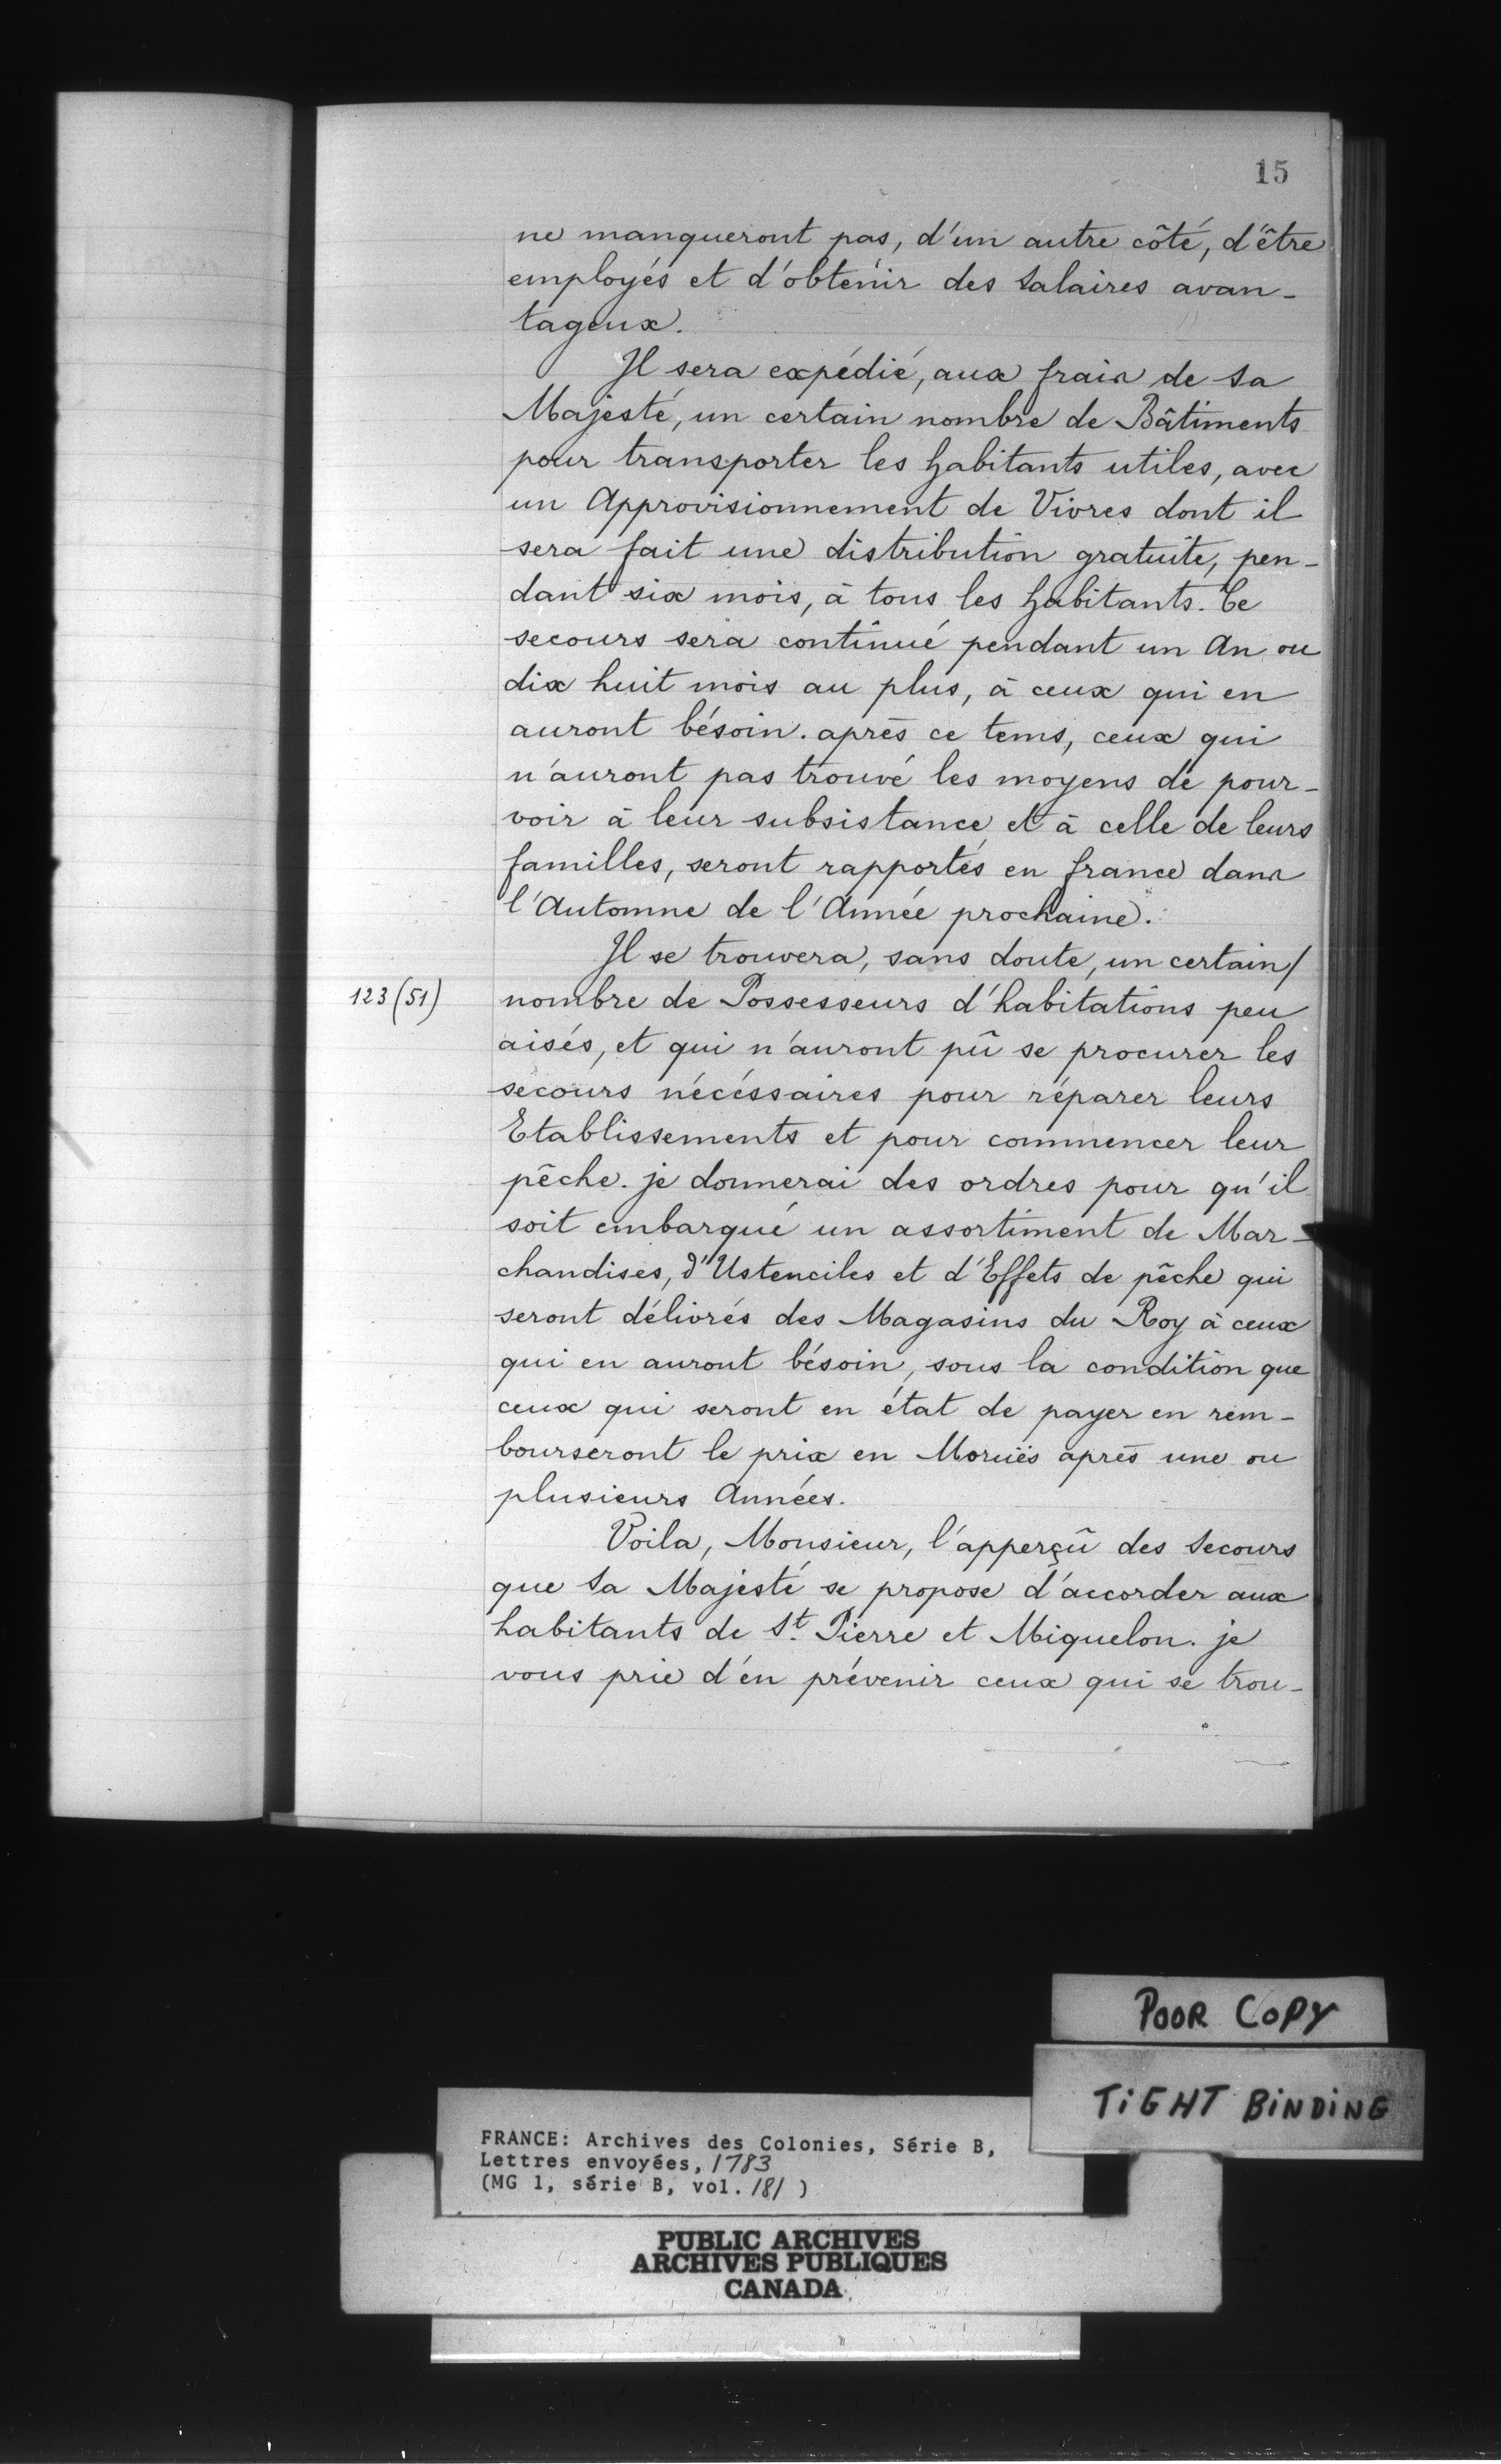 15
ne manqueront pas, d'un autre côté, d'être
employés et d'obtenir des Salaires avan-
tageux.
Il sera expédié, aux frais de Sa
Majesté, un certain nombre de Bâtiments
pour transporter les habitants utiles, avec
un Approvisionnement de Vivres dont il
sera fait une distribution gratuite, pen-
dant six mois, à tous les habitants. Ce
secours sera continué pendant un An ou
dix huit mois au plus, à ceux qui en
auront bésoin. après ce tems, ceux qui
n'auront pas trouvé les moyens de pour-
voir à leur subsistance et à celle de leurs
familles, seront rapportés en france dans
l'Automne de l'Année prochaine.
Il se trouvera, sans doute, un certain/
123 (51) nombre de Possesseurs d'habitations peu
aisés, et qui n'auront pû se procurer les
secours nécéssaires pour réparer leurs
Etablissements et pour commencer leur
pêche. je donnerai des ordres pour qu'il
soit embarqué un assortiment de Mar-
chandises, d'Ustenciles et d'Effets de pêche qui
seront délivrés des Magasins du Roy à ceux
qui en auront bésoin, sous la condition que
ceux qui seront en état de payer en rem-
bourseront le prix en Moruës après une ou
plusieurs Années.
Voila, Monsieur, l'apperçû des Secours
que Sa Majesté se propose d'accorder aux
habitants de St. Pierre et Miquelon. je
vous prie d'en prévenir ceux qui se trou-
POOR COPY
TIGHT BINDING
FRANCE: Archives des Colonies, Série B,
Lettres envoyées, 1783
(MG 1, série B, vol. 181 )
PUBLIC ARCHIVES
ARCHIVES PUBLIQUES
CANADA